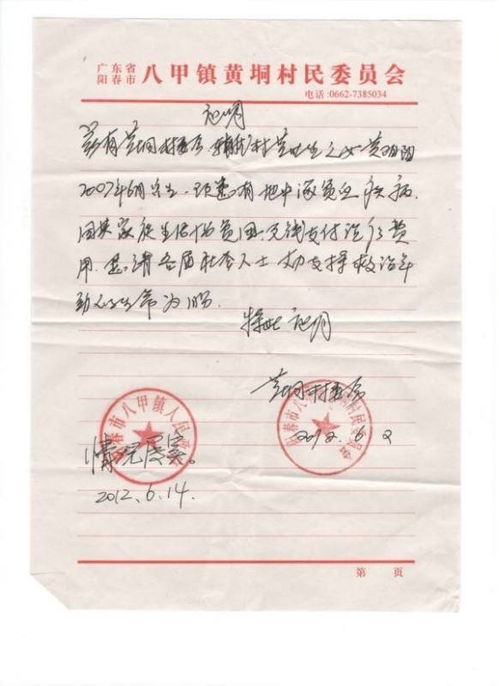 广东省
阳春市
八甲镇黄垌村民委员会
电话:0662-7385034
证明
兹有黄垌村委会 村黄 生之女黄
2007年6月出生,现患有地中海贫血疾病,
因其家庭生活 贫困,无钱支付治疗费
用,恳请各届社会人士 支持救治
生命为盼.
特此证明
黄垌村委会
2012.6.2
阳春市八甲镇人民
情况属实。
2012.6.14.
春市八甲 村民委员会
第 页